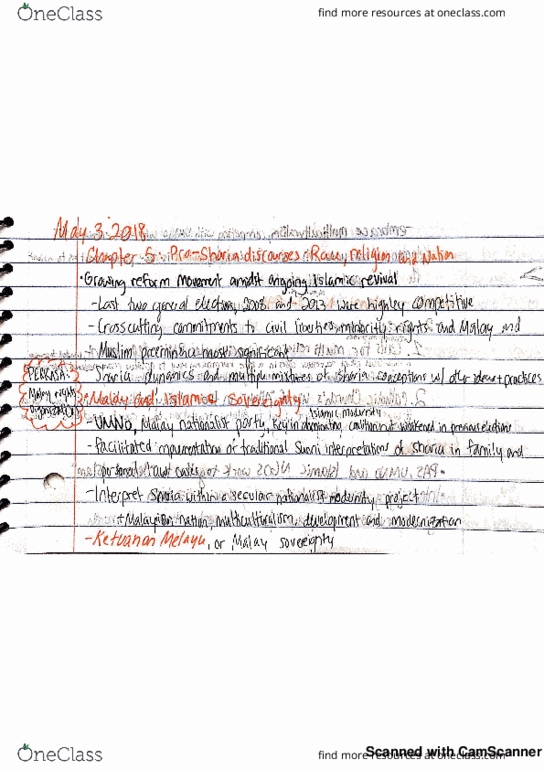 OneClass
find more resources at oneclass.com
May 3 2018
Chapter 5: Pro-Sharia discourses: Race, religion and Nation
• Growing reform movement amidst ongoing Islamic revival
- Last two general elections, 2008 and 2013 were highley competitive
- Crosscutting commitments to civil liberties, minority rights and Malay and
Muslim most significant
PERKASA:
Malay right
organization
Sharia dynamics and multiple mixtures of Sharia conceptions w/ other ideas + practices
• Malay and Islamic Sovereignty
Islamic modernity
- UMNO, Malay nationalist party, key in dominating coalition but weakened in previous elections
- Facilitated implementation of traditional Sunni interpretations of Sharia in family and
personal law
- Interpret Sharia within a secular nationalist modernity project
Malaysian nation, multiculturalism, development and modernization
- Ketuanan Melayu, or Malay sovereignty
OneClass
find more resources at oneclass.com
Scanned with CamScanner